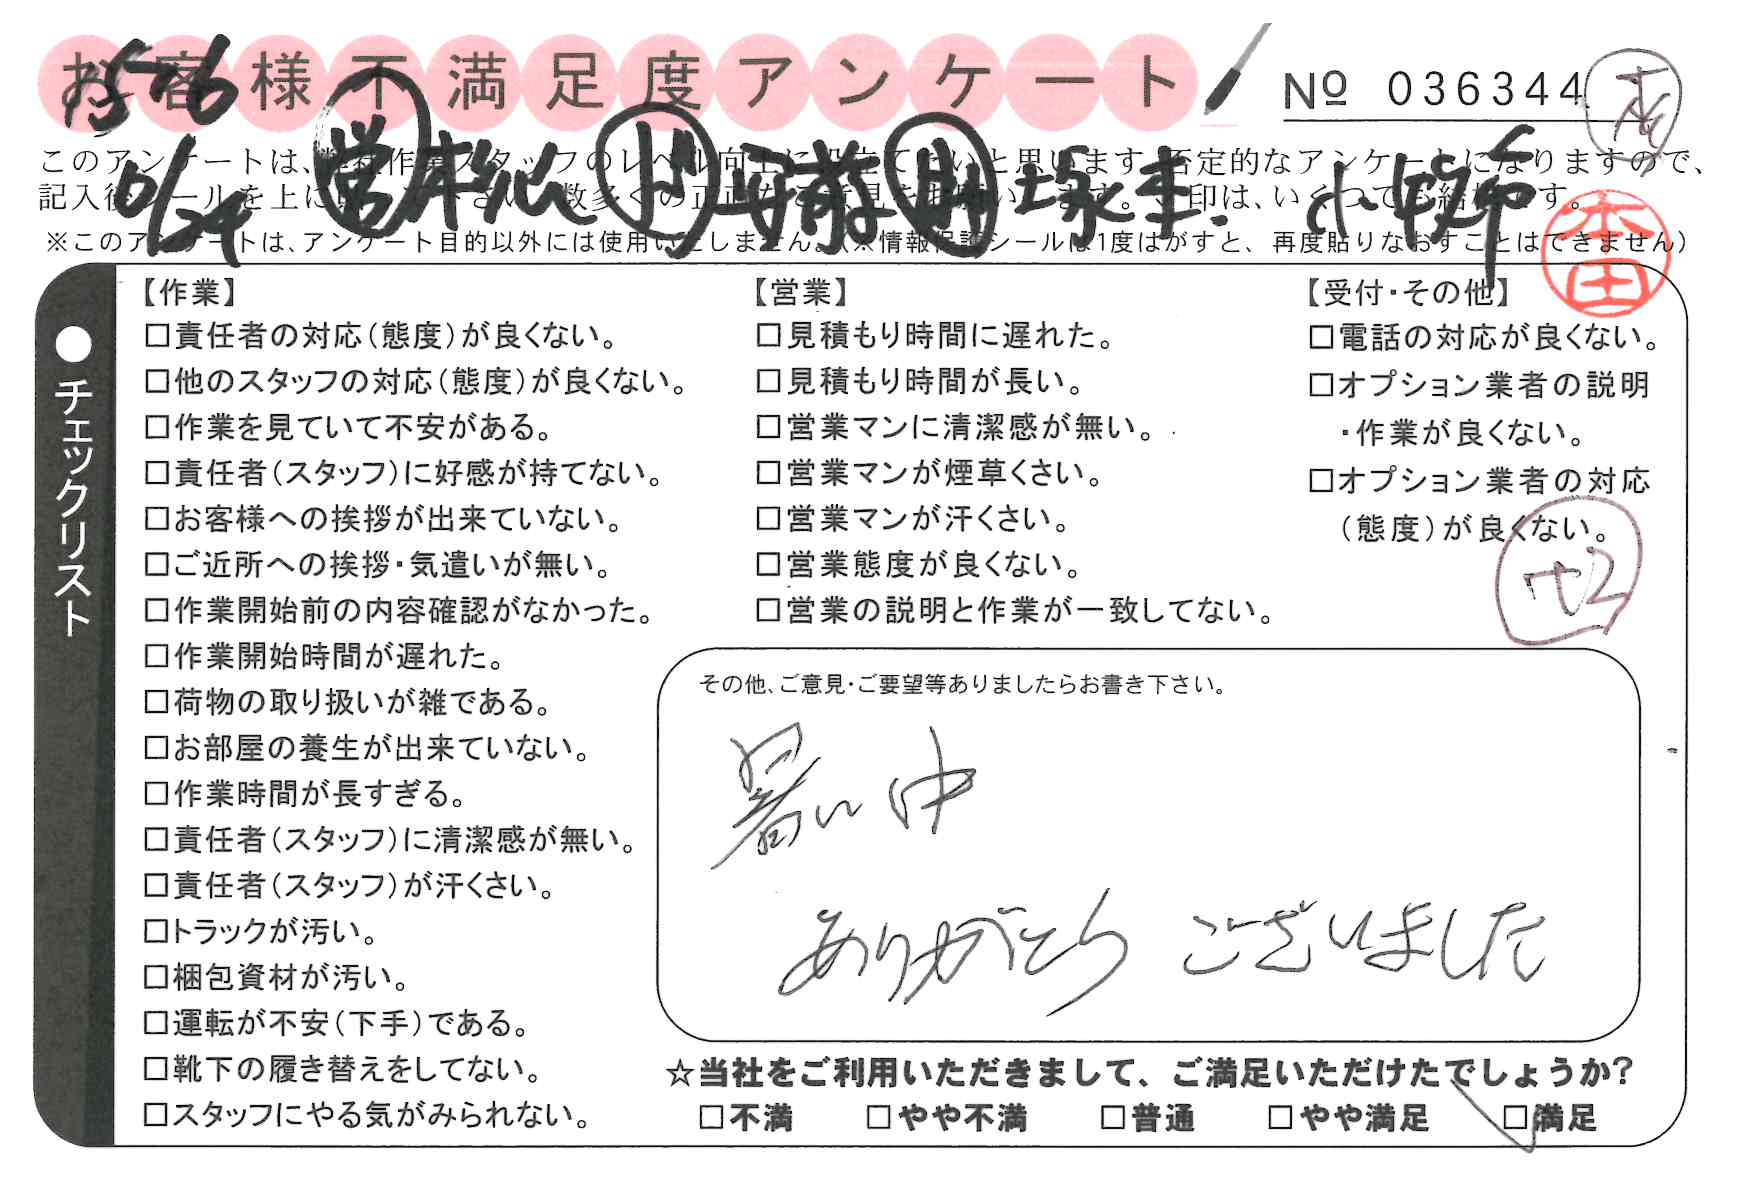 お客様不満足度アンケート
No 036344
1576
10/24 営 松 ド 安 助 塚本.
このアンケートは、弊社作業スタッフのレベル向上に役立てたいと思います。否定的なアンケートになりますので、
記入後シールを上に
※このアンケートは、アンケート目的以外には使用いたしません。(※情報保護シールは1度はがすと、再度貼りなおすことはできません)
本田
●チェックリスト
【作業】
□責任者の対応(態度)が良くない。
□他のスタッフの対応(態度)が良くない。
□作業を見ていて不安がある。
□責任者(スタッフ)に好感が持てない。
□お客様への挨拶が出来ていない。
□ご近所への挨拶・気遣いが無い。
□作業開始前の内容確認がなかった。
□作業開始時間が遅れた。
□荷物の取り扱いが雑である。
□お部屋の養生が出来ていない。
□作業時間が長すぎる。
□責任者(スタッフ)に清潔感が無い。
□責任者(スタッフ)が汗くさい。
□トラックが汚い。
□梱包資材が汚い。
□運転が不安(下手)である。
□靴下の履き替えをしてない。
□スタッフにやる気がみられない。
【営業】
□見積もり時間に遅れた。
□見積もり時間が長い。
□営業マンに清潔感が無い。
□営業マンが煙草くさい。
□営業マンが汗くさい。
□営業態度が良くない。
□営業の説明と作業が一致してない。
【受付・その他】
□電話の対応が良くない。
□オプション業者の説明
・作業が良くない。
□オプション業者の対応
(態度)が良くない。
その他、ご意見・ご要望等ありましたらお書き下さい。
暑い中
ありがとう ございました
☆当社をご利用いただきまして、ご満足いただけたでしょうか?
□不満 □やや不満 □普通 □やや満足 □満足